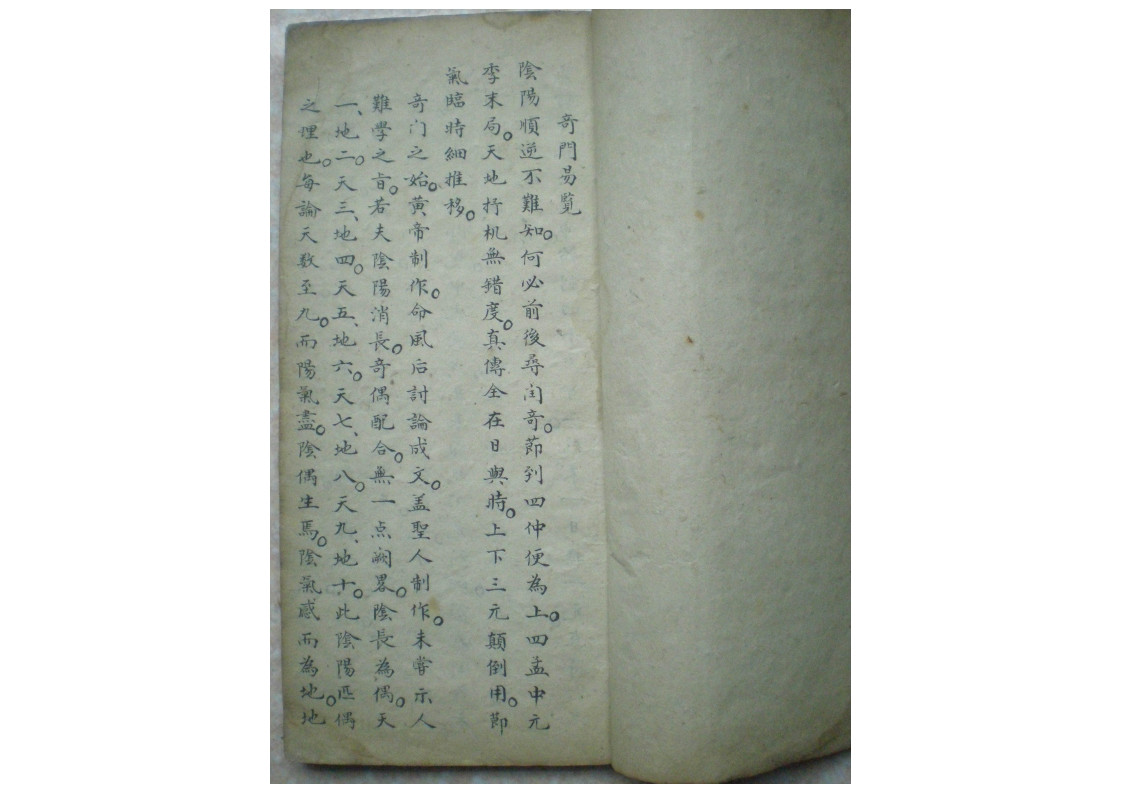 奇門易覽
陰陽順逆不難知。何必前後尋闰奇。節到四仲便為上。四孟中元
季末局。天地抒机無錯度。真傳全在日與時。上下三元顛倒用。節
氣臨時細推移。
奇门之始。黄帝制作。命風后討論成文。盖聖人制作。未甞示人
難學之旨。若夫陰陽消長。奇偶配合。無一点阙畧。陰長為偶。天
一、地二。天三、地四。天五、地六。天七、地八。天九、地十。此陰陽匹偶
之理也。每論天数至九。而陽氣盡。陰偶生焉。陰氣感而為地。地